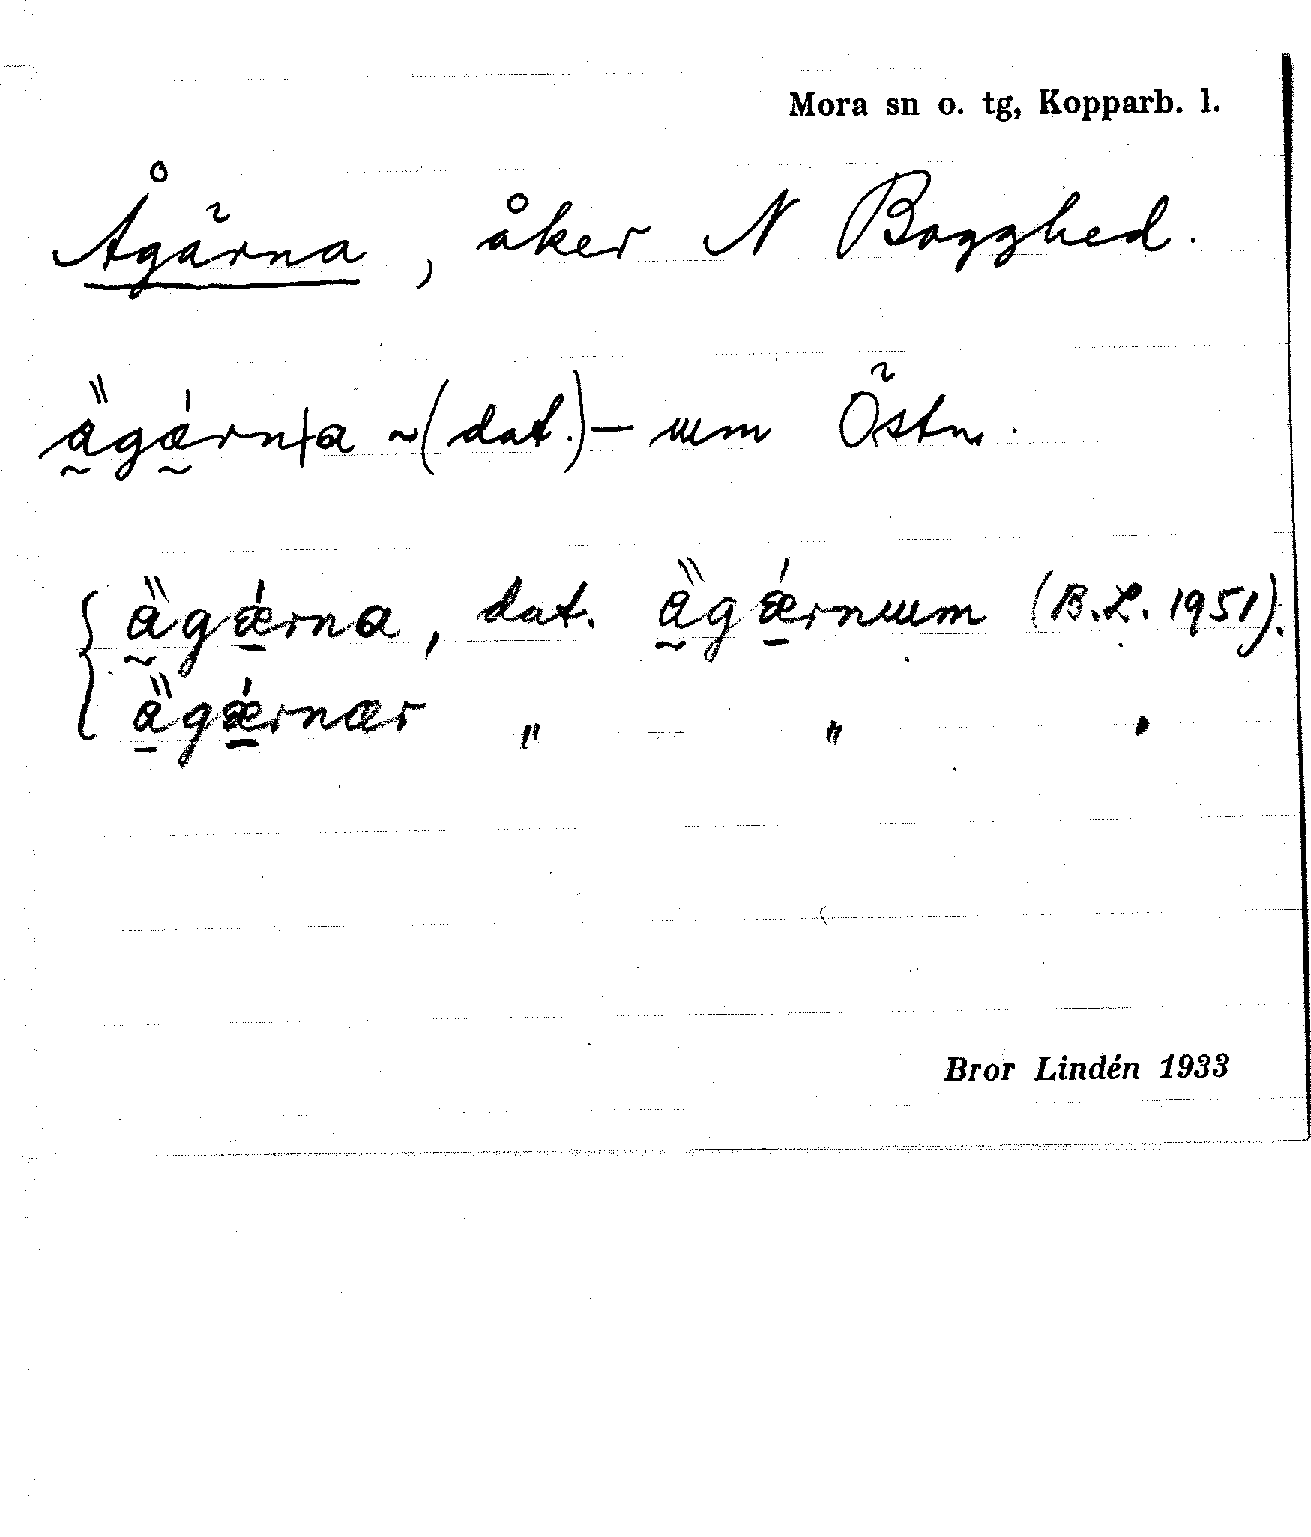 Mora sn o. tg, Kopparb. l.
Ågärna, åker N Bogghed.
ägǽrn/a ~ (dat.) – um Östn.
ägǽrna, dat. ägǽrnum (B.L. 1951).
ägǽrnær " " .
Bror Lindén 1933